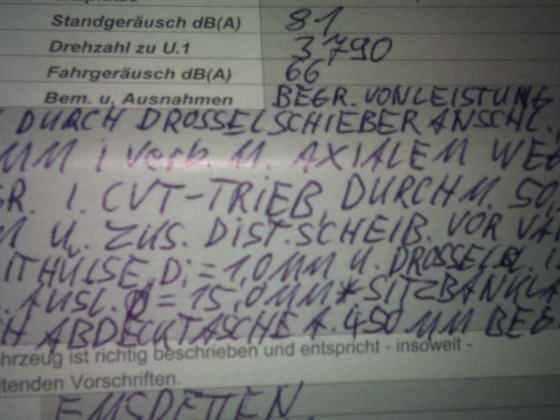 Standgeräusch dB(A) 81
Drehzahl zu U.1 3790
Fahrgeräusch dB(A) 66
Bem. u. Ausnahmen BEGR. VON LEISTUNG
DURCH DROSSELSCHIEBERANSCHL.
MM I verb. M. AXIALEM WE
GR. I. CVT-TRIEB, DURCH M. 50
M U. ZUS. DIST.SCHEIB. VOR VA
ITHÜLSE, Di=1,0MM U. DROSSEL
AUSL. Ø=15,0MM*SITZBANKLÄ
H ABDECKTASCHE A. 450 MM BEG
hrzeug ist richtig beschrieben und entspricht - insoweit -
tenden Vorschriften.
EMSDETTEN